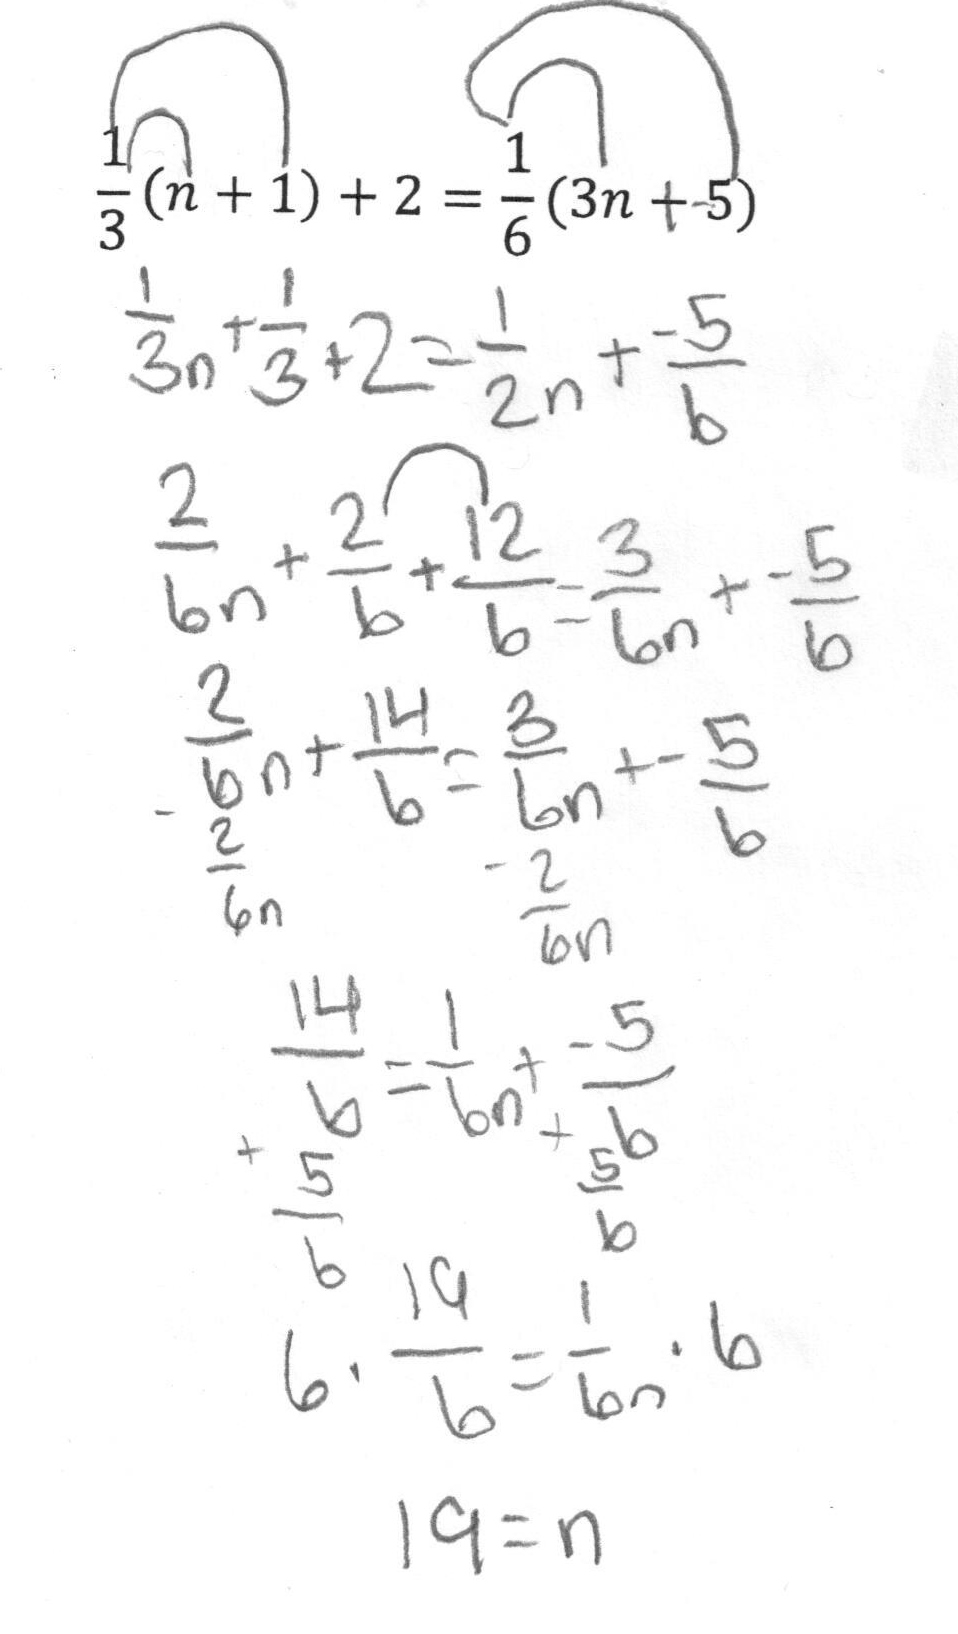 1/3(n + 1) + 2 = 1/6(3n + -5)
1/3n + 1/3 + 2 = 1/2n + -5/6
2/6n + 2/6 + 12/6 = 3/6n + -5/6
2/6n + 14/6 = 3/6n + -5/6
- 2/6n - 2/6n
14/6 = 1/6n + -5/6
+ 5/6 + 5/6
6 · 19/6 = 1/6n · 6
19 = n